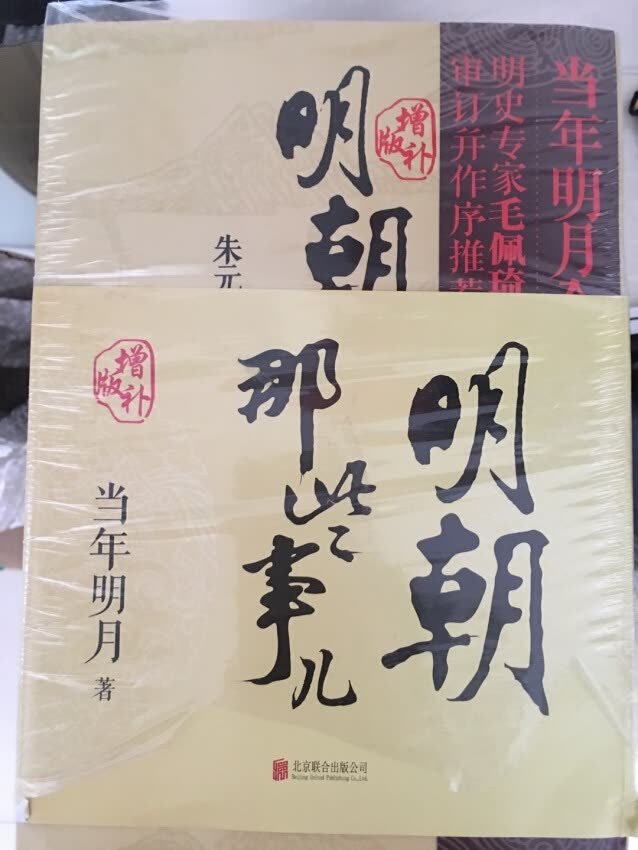 当年明月
明史专家毛佩琦
审订并作序推荐
增补版
明朝
朱元
明朝
那些事儿
增补版
当年明月 著
北京联合出版公司
Beijing United Publishing Co., Ltd.